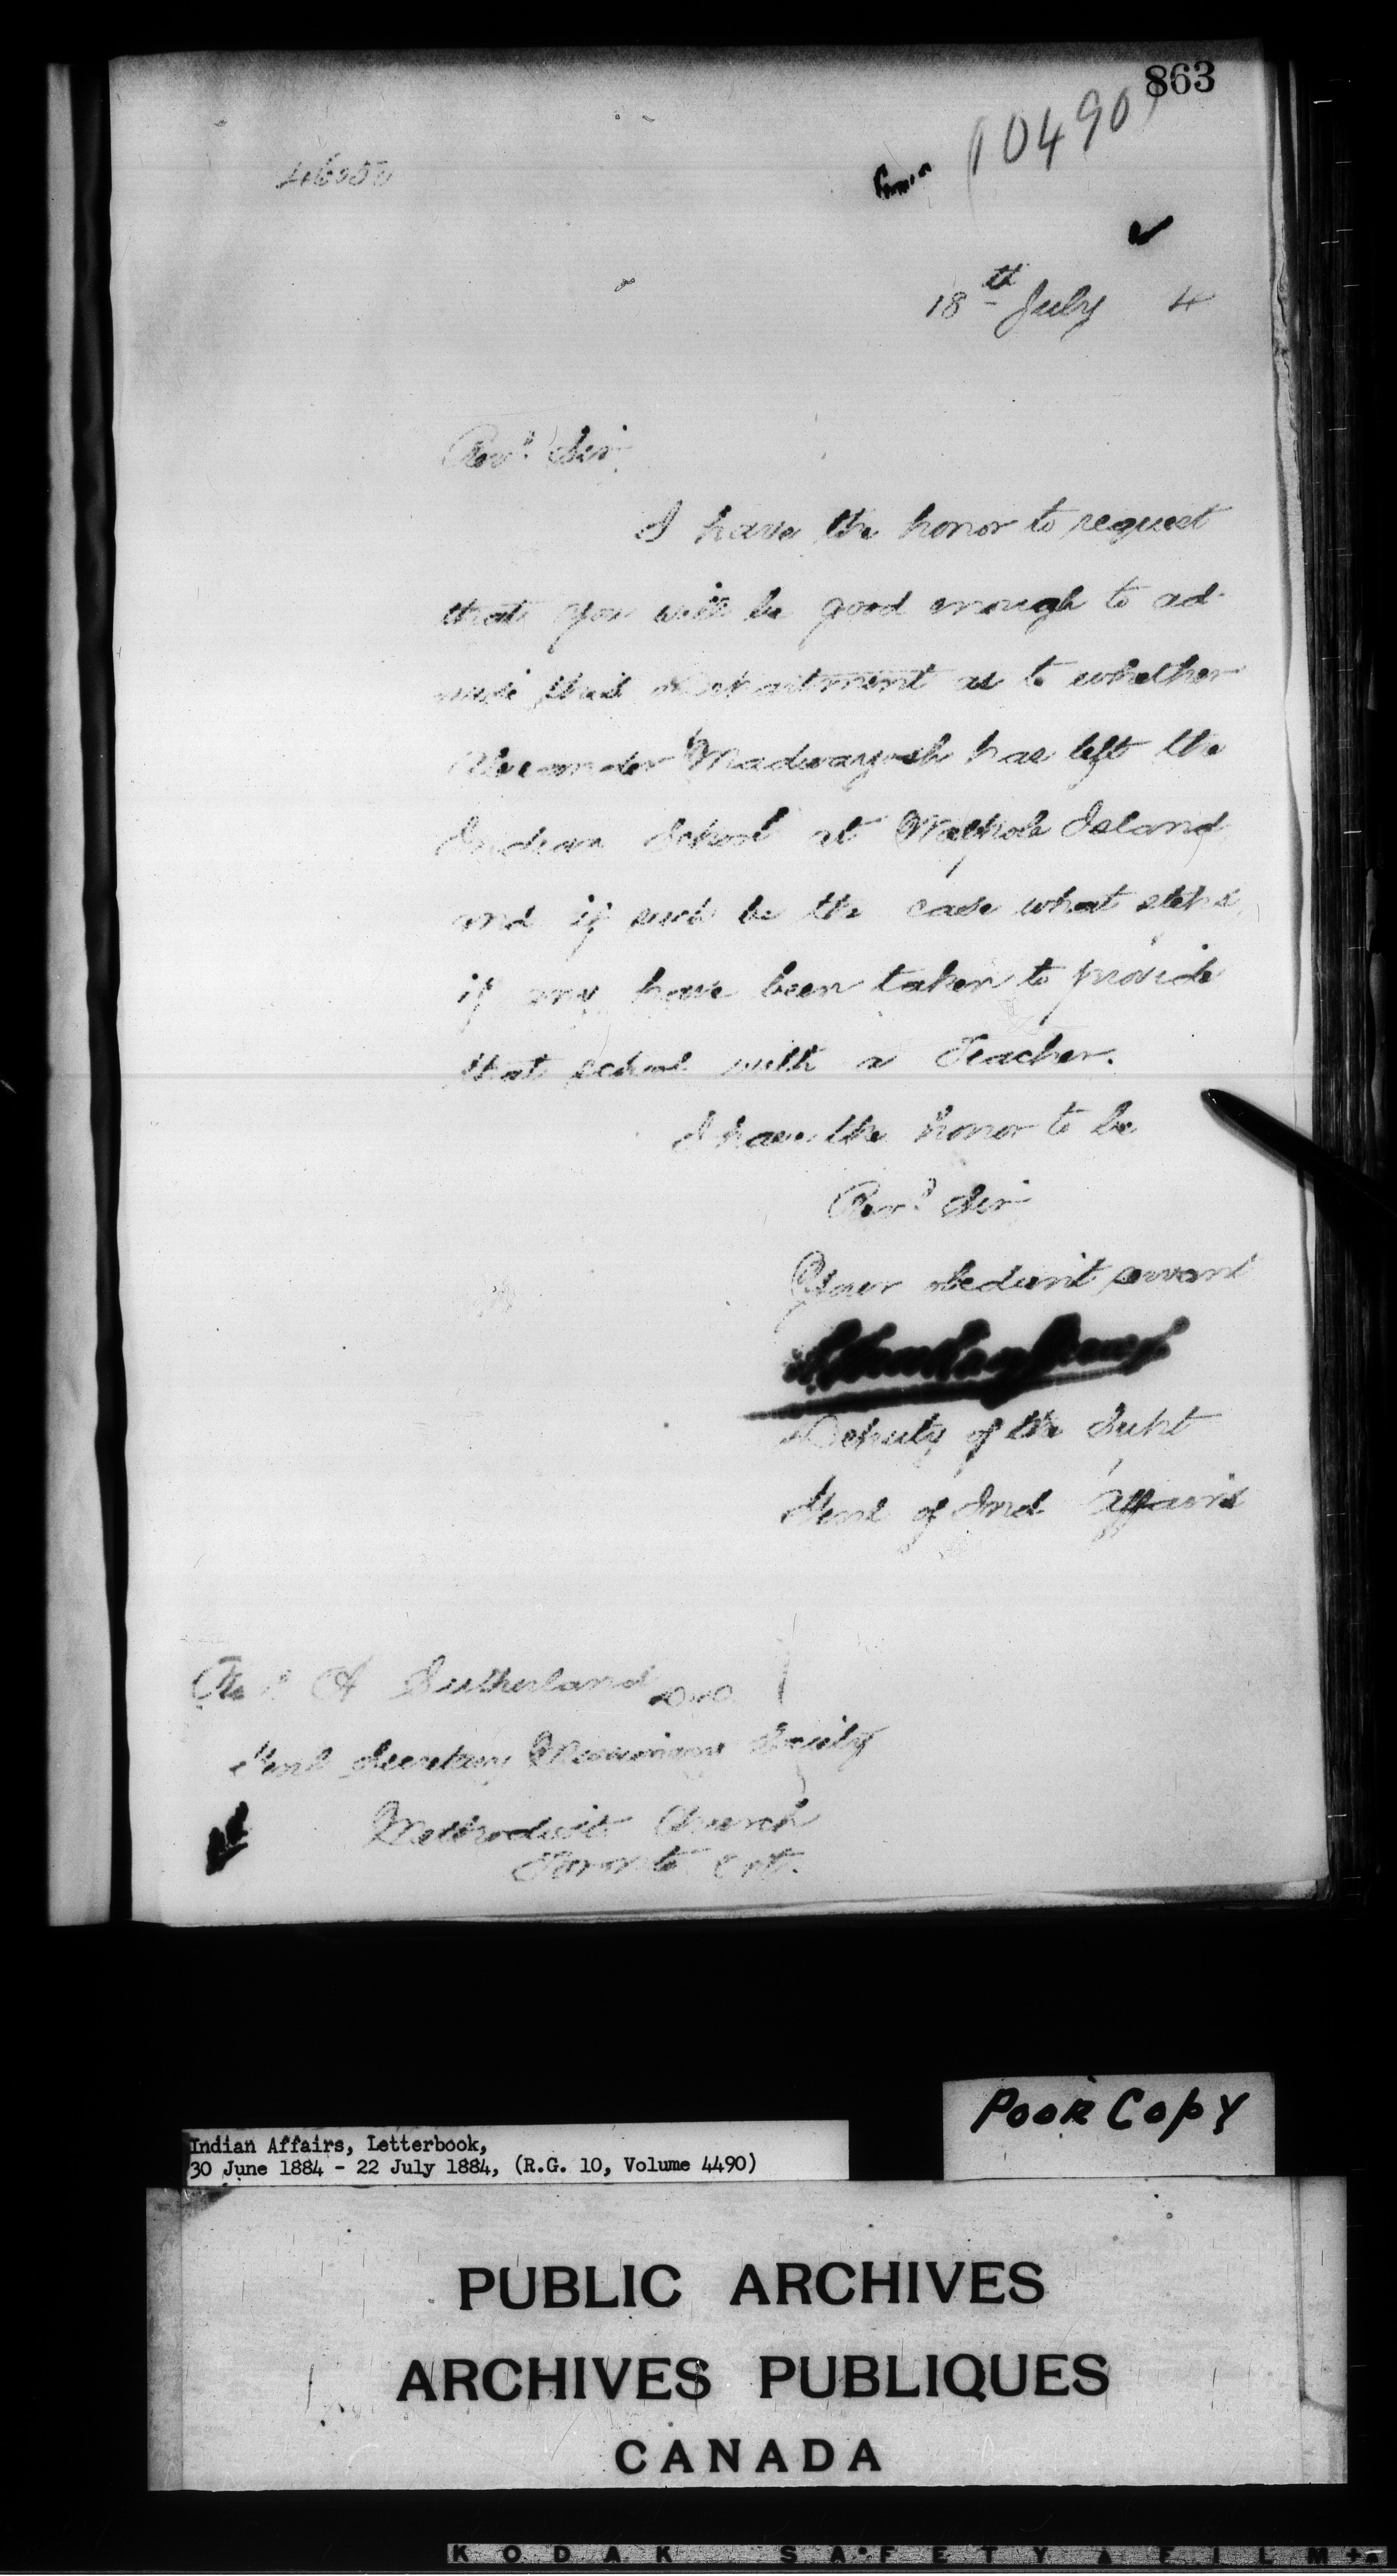 863
10490
18th July 4
Revd. Sir,
I have the honor to request
that you will be good enough to ad-
vise this Department as to whether
Alexander Madwayosh has left the
Indian School at Walpole Island
and if such be the case what steps,
if any have been taken to provide
that school with a Teacher.
I have the honor to be
Revd. Sir
Your obedient servant
Deputy of the Supt
Genl of Ind Affairs
Revd. A Sutherland D.D.
Genl Secretary Missionary Society
Methodist Church
Toronto Ont.
Poor Copy
Indian Affairs, Letterbook,
30 June 1884 - 22 July 1884, (R.G. 10, Volume 4490)
PUBLIC ARCHIVES
ARCHIVES PUBLIQUES
CANADA
KODAK SAFETY FILM